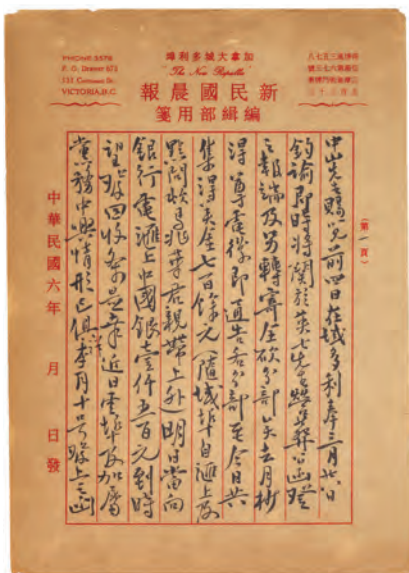 PHONE 3578
P. O. Drawer 673
VICTORIA, B.C.
加拿大域多利埠
"The New Republic"
新民國晨報
編輯部用箋
(第一頁)
中山先生賜鑒前四日在域多利奉三月廿八日
鈞諭即時將關於英士先生公函登
之報端及另轉寄全砍分部矣去月抄
得尊電後即通告各分部至今日共
集得英金七百餘元(隨域埠自匯上及
點問頓馬兆李君親帶上外)明日當向
銀行電匯上中國銀壹仟五百元到時
望發回收條是幸近日雲埠及加屬
黨務中興情形已俱詳本月十號上之函
中華民國六年 月 日發